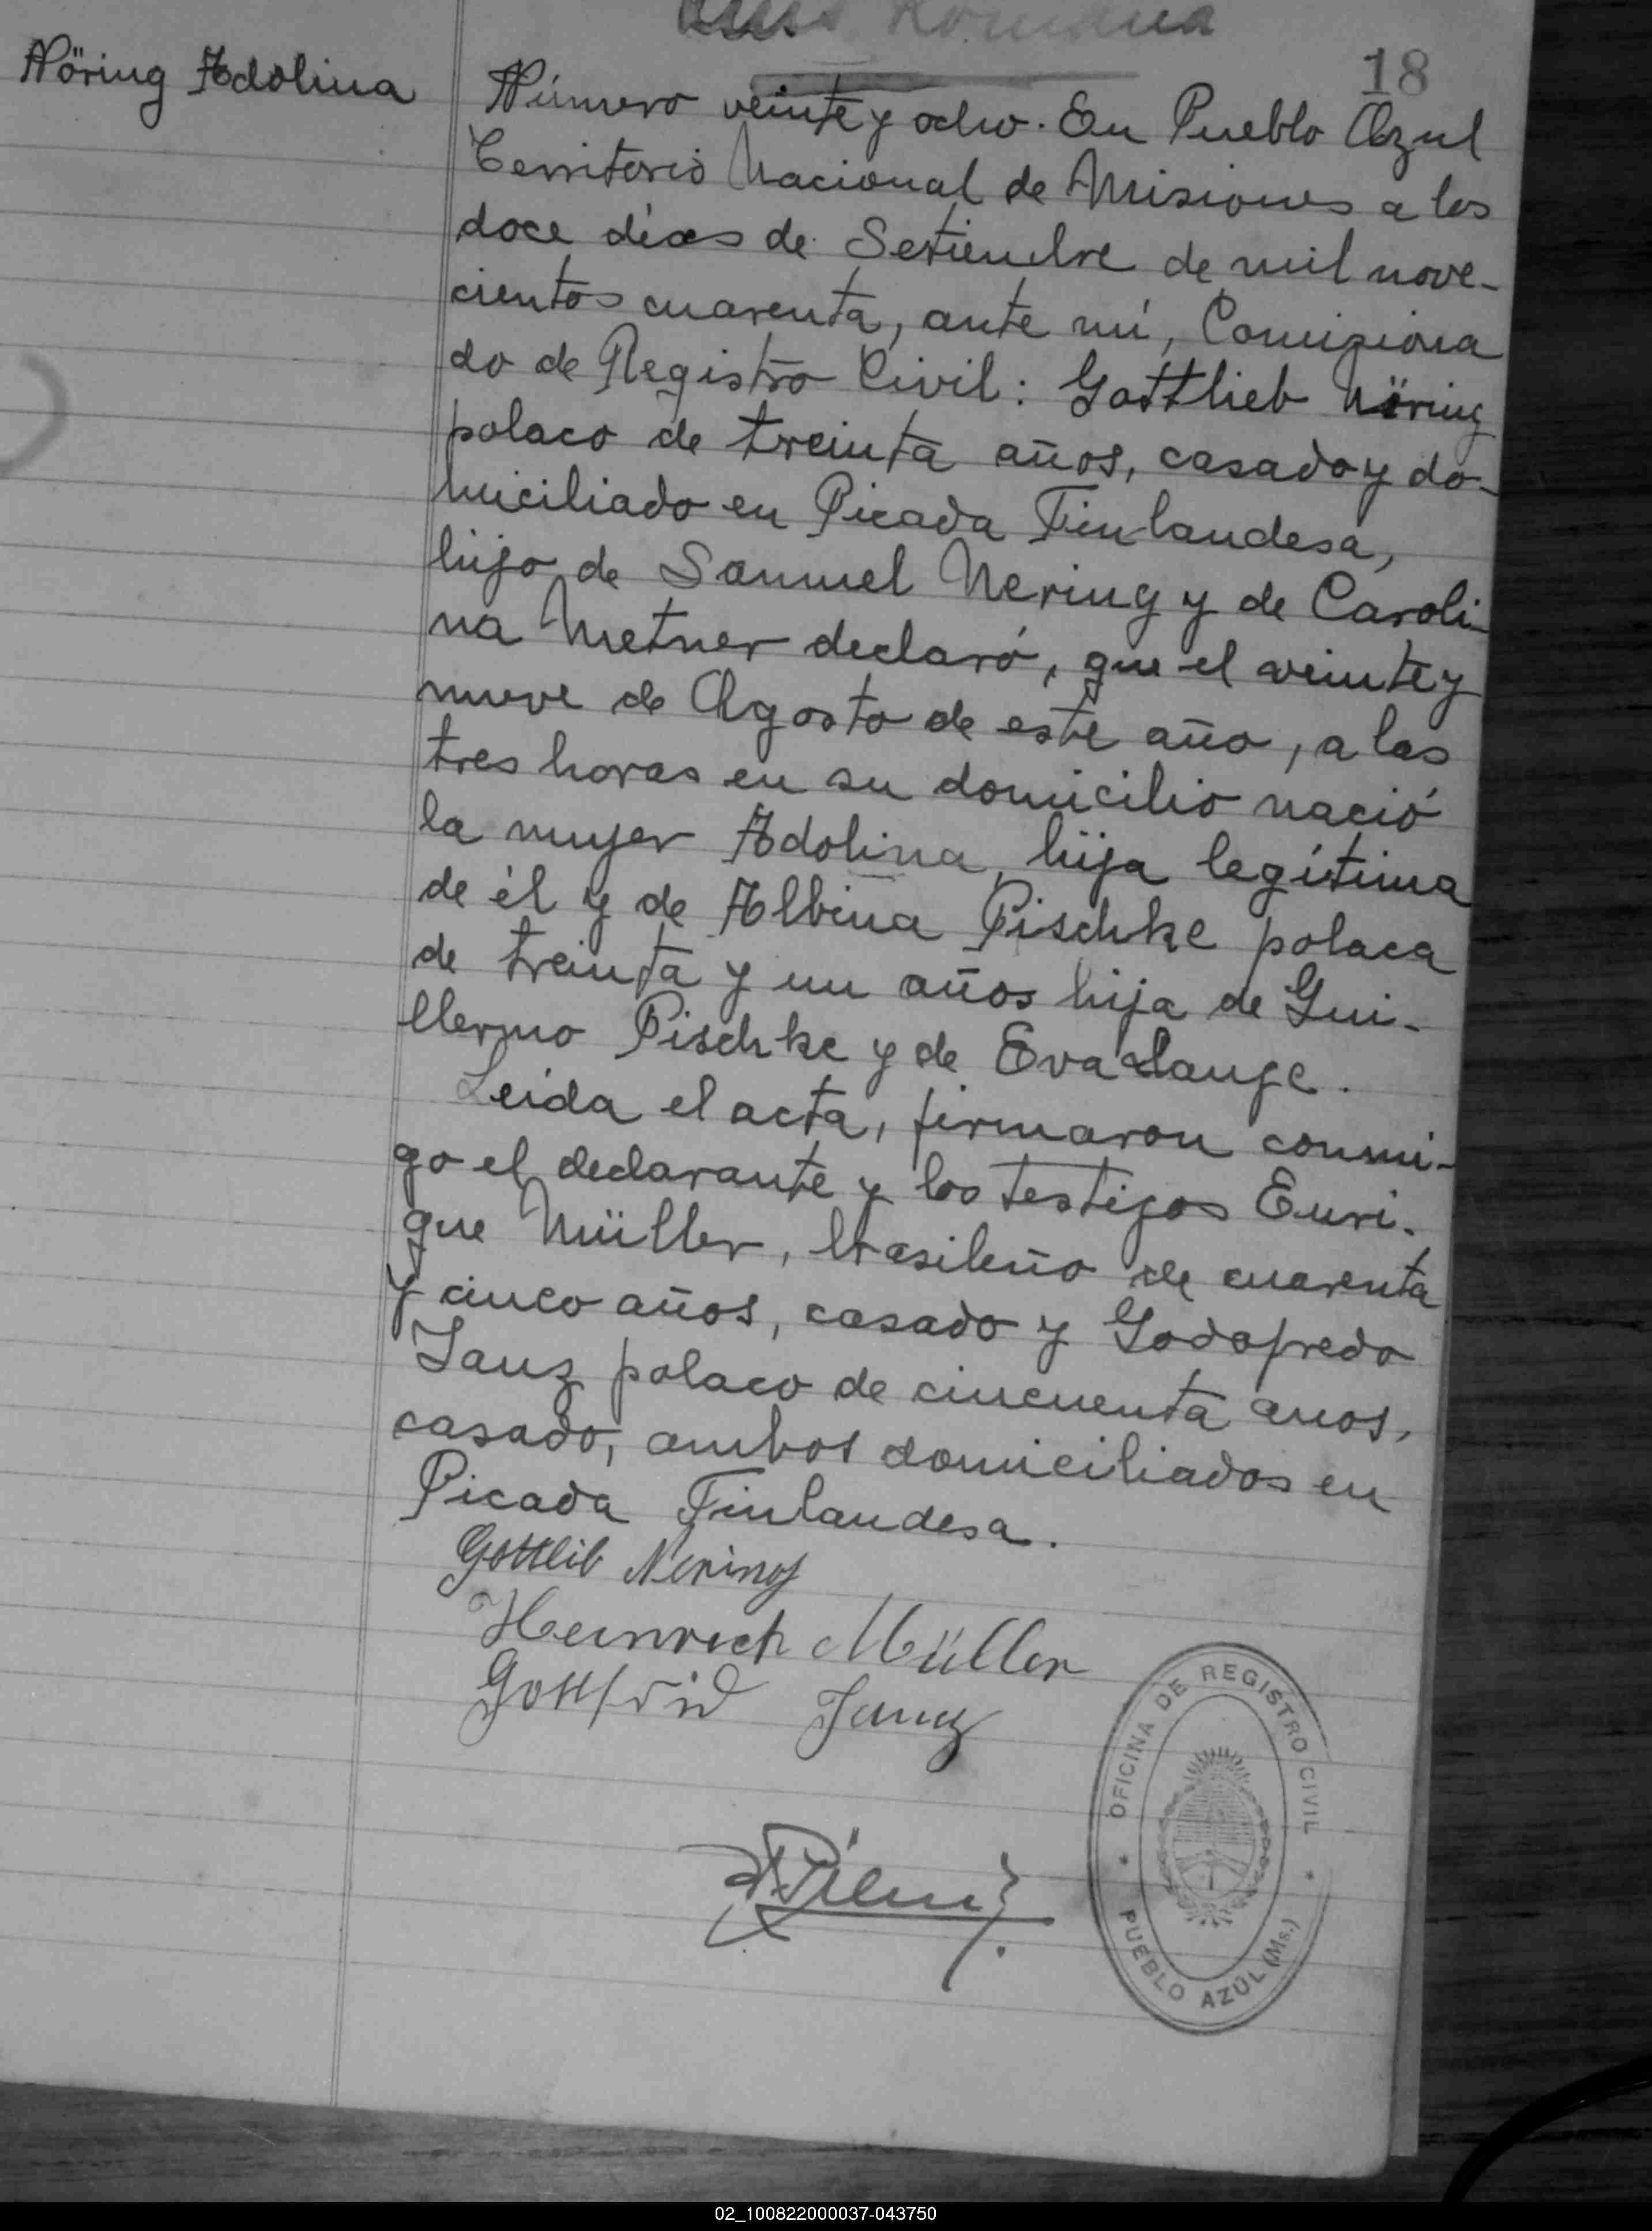 18
Nöring Adolina
Número veinte y ocho. En Pueblo Azul
Territorio Nacional de Misiones a los
doce días de Setiembre de mil nove-
cientos cuarenta, ante mí, Comisiona
do de Registro Civil: Gottlieb Nöring
polaco de treinta años, casado y do-
miciliado en Picada Finlandesa,
hijo de Samuel Nering y de Caroli-
na Metner declaró, que el veinte y
nueve de Agosto de este año, a las
tres horas en su domicilio nació
la mujer Adolina, hija legítima
de él y de Albina Pischke polaca
de treinta y un años hija de Gui-
llermo Pischke y de Eva Lange.
Leida el acta, firmaron conmi-
go el declarante y los testigos Enri-
que Müller, brasileño de cuarenta
y cinco años, casado y Godofredo
Janz polaco de cincuenta anos,
casado, ambos domiciliados en
Picada Finlandesa.
Gottlib Nering
Heinrich Müller
Gottfrid Janz
OFICINA DE REGISTRO CIVIL
* PUEBLO AZÚL (Ms.) *
02_100822000037-043750